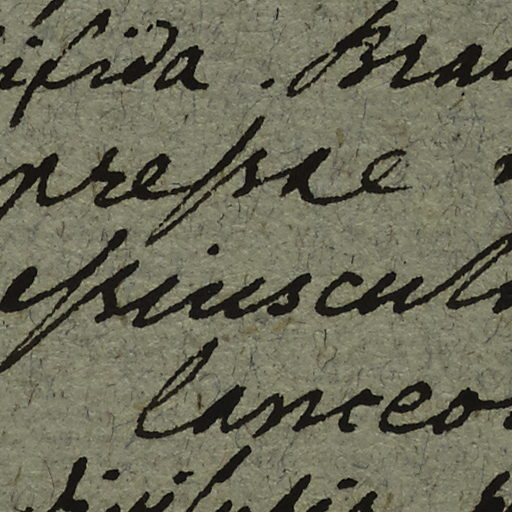 ifida. Brac
pressae
essiuscul
lanceo